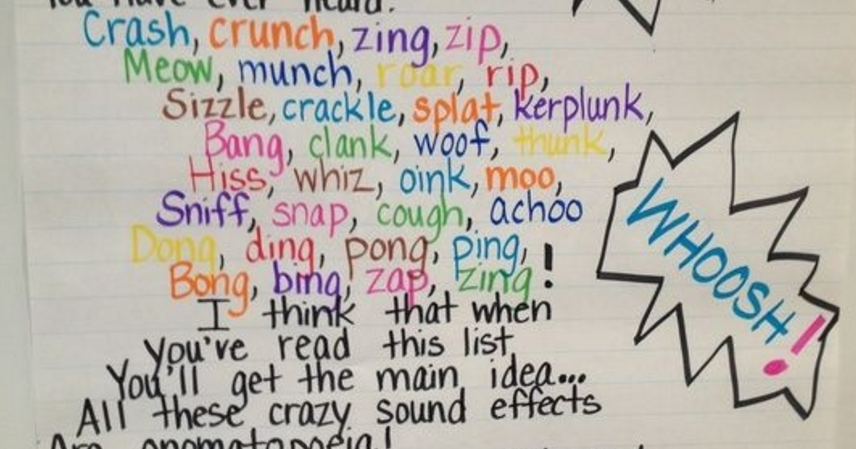 You have ever heard:
Crash, crunch, zing, zip,
Meow, munch, roar, rip,
Sizzle, crackle, splat, kerplunk,
Bang, clank, woof, thunk,
Hiss, whiz, oink, moo,
Sniff, snap, cough, achoo
Dong, ding, pong, ping,
Bong, bing, zap, zing!
I think that when
You've read this list
You'll get the main idea...
All these crazy sound effects
Are onomatopoeia!
WHOOSH!